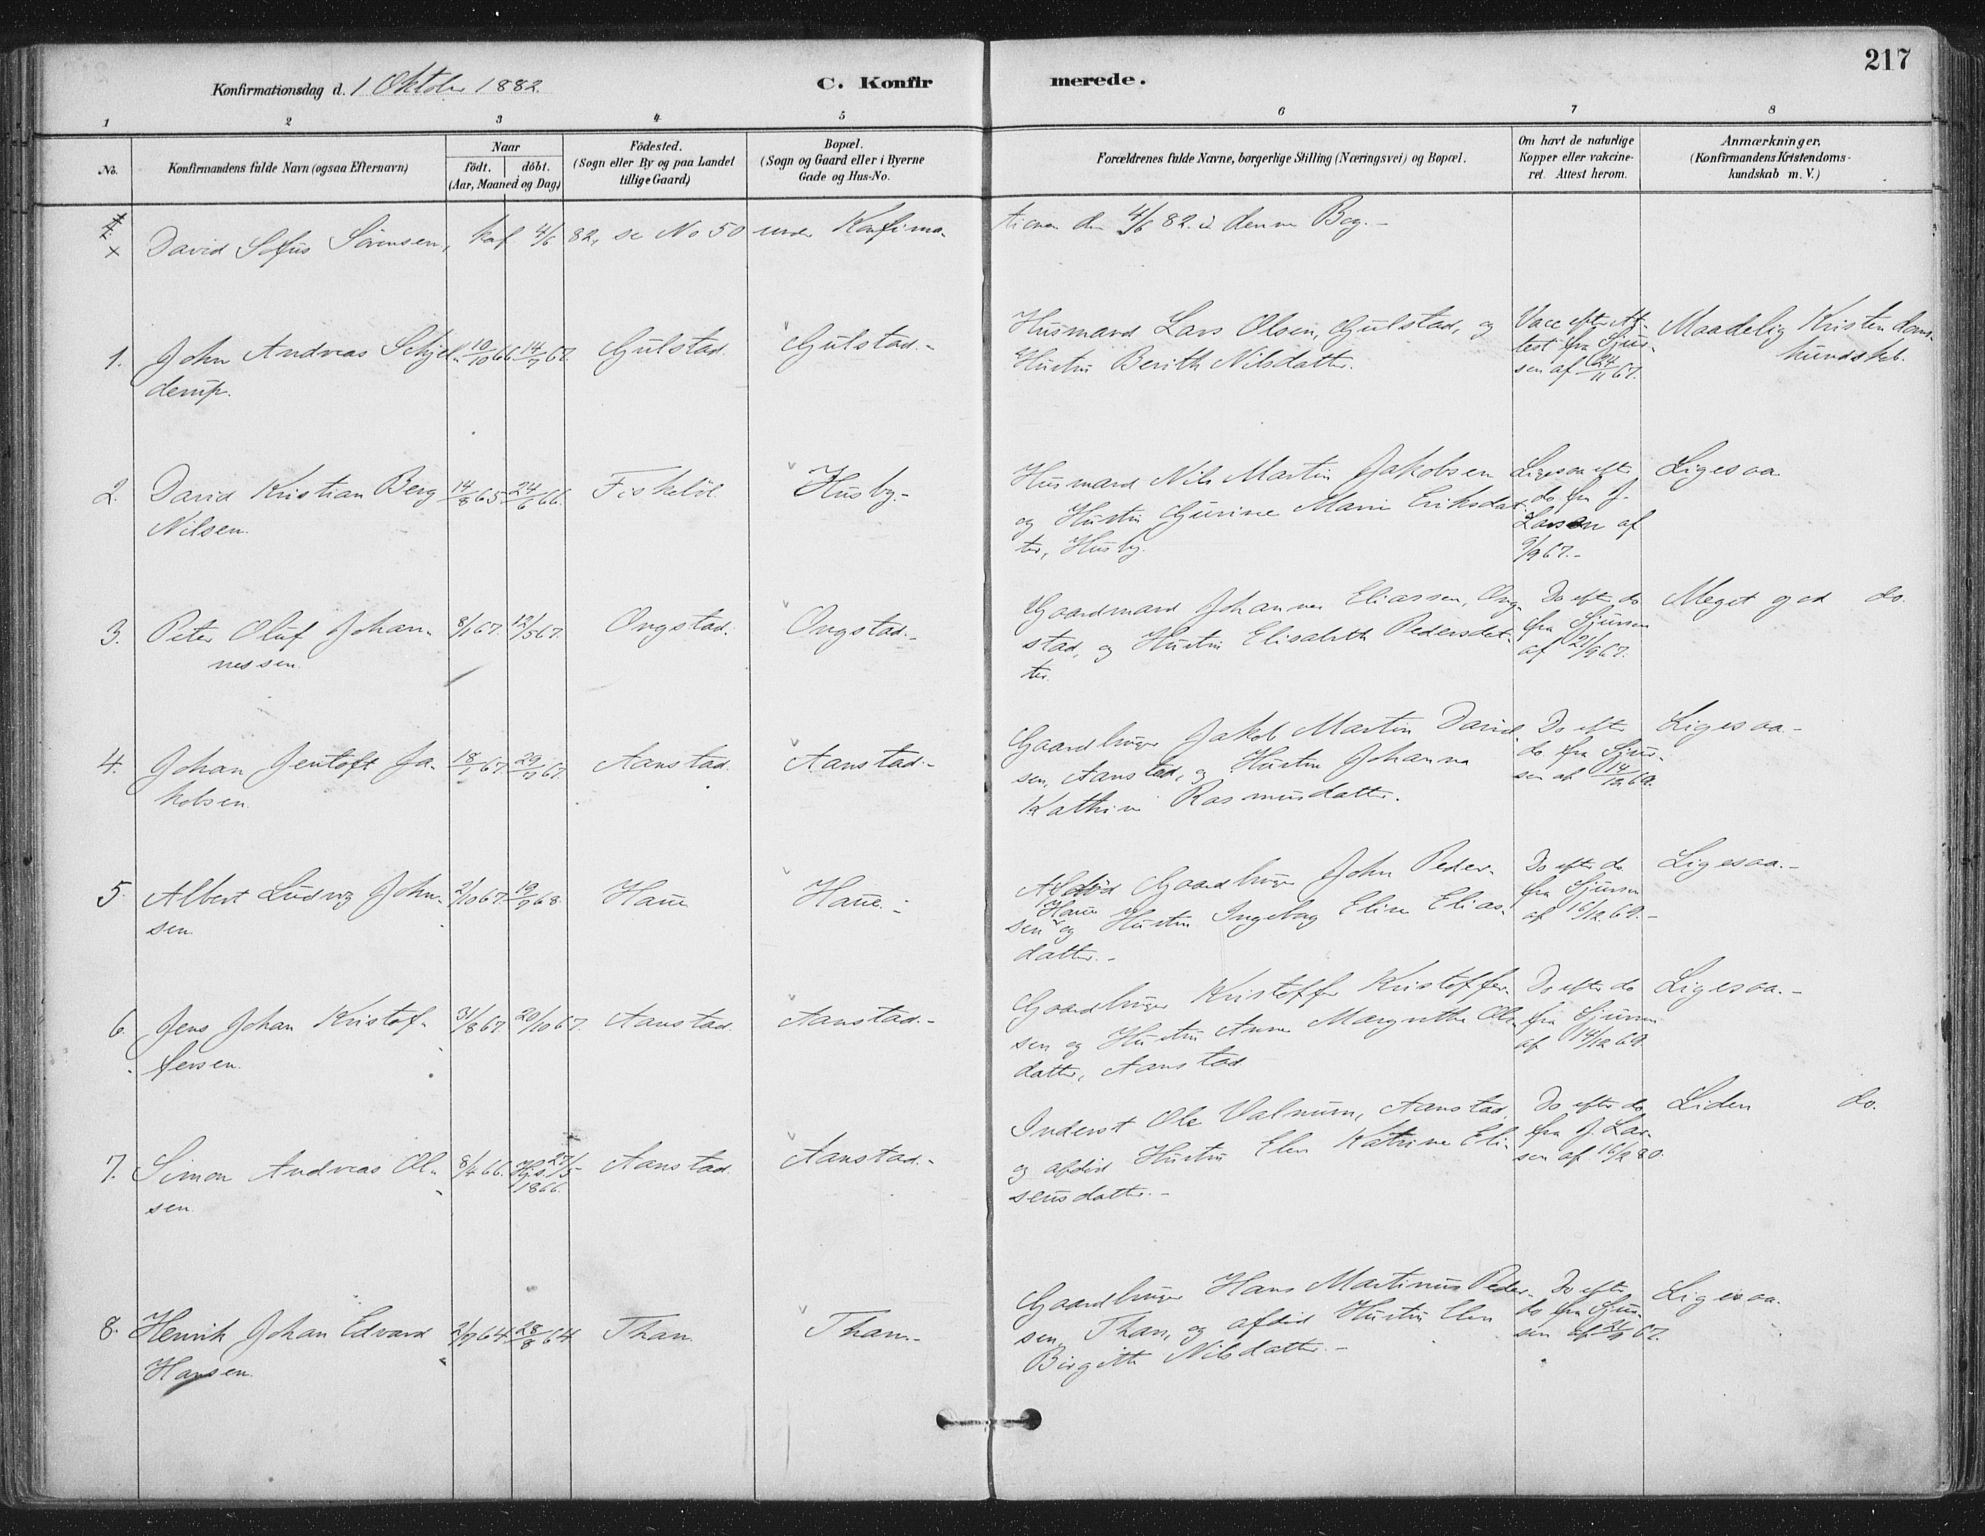 217
Konfirmationsdag d. 1 Oktober 1882.
C. Konfirmerede.
1 2 3 4 5 6 7 8
No.
Konfirmandens fulde Navn (ogsaa Efternavn)
Naar
Födt. döbt.
(Aar, Maaned og Dag)
Födested.
(Sogn eller By og paa Landet
tillige Gaard)
Bopæl.
(Sogn og Gaard eller i Byerne
Gade og Hus-No.
Forældrenes fulde Navne, borgerlige Stilling (Næringsvei) og Bopæl.
Om havt de naturlige
Kopper eller vakcine-
ret. Attest herom.
Anmærkninger,
(Konfirmandens Kristendoms-
kundskab m. V.)
David Sofus Sörensen, kof 4/6 82, se No 50 under Konfirma-
tionen den 4/6 82 i denne Bog.-
1. John Andreas Schjel-
derup.
10/10 66. 14/7 67.
Gulstad.
Gulstad.-
Husmand Lars Olsen, Gulstad, og
Hustru Berith Nilsdatter.
Vacc efter At-
test fra Sjur-
sen af 24/11 67.
Maadelig Kristendoms-
kundskab.
2. David Kristian Berg
Nilsen.
14/8 65. 24/6 66.
Fiskeböl.
Husby.-
Husmand Nils Martin Jakobsen
og Hustru Gurine Marie Eriksdat-
ter, Husby.
Ligesaa efter
do fra J.
Larsen af
9/9 67.-
Ligesaa
3. Peter Oluf Johan-
nessen.
8/1 67. 12/5 67.
Ongstad.
Ongstad.-
Gaardmand Johannes Eliassen, Ong-
stad, og Hustru Elisabeth Pedersdat-
ter.
Do efter do
fra Sjursen
af 21/9 67.
Meget god do.
4. Johan Jentoft Ja-
kobsen.
18/1 67. 29/9 67.
Aanstad.
Aanstad.-
Gaardbruger Jakob Martin David-
sen, Aanstad, og Hustru Johanna
Kathrine Rasmusdatter.
Do efter
do fra Sjur-
sen af 14/12 69.
Ligesaa.-
5. Albert Ludvig John-
sen.
2/10 67. 19/7 68.
Haue
Haue.-
Afdöd Gaardbruger John Peder-
sen Haue og Hustru Ingeborg Elise Elias-
datter.-
Do efter do
fra Sjursen
af 16/12 69.-
Ligesaa.-
6. Jens Johan Kristof-
fersen.
31/8 67. 20/10 67.
Aanstad.
Aanstad.-
Gaardbruger Kristoffer Kristoffer-
sen og Hustru Anne Margrethe Ols-
datter, Aanstad
Do efter do
fra Sjursen
af 14/12 69.
Ligesaa.-
7. Simon Andreas Ol-
sen.
8/4 66. 27/5
1866.
Aanstad.
Aanstad.-
Inderst Ole Valnum, Aanstad,
og afdöd Hustru Elen Katrine Eli-
seusdatter.-
Do efter do
fra J. Lar-
sen af 16/9 80.
Liden do.
8. Henrik Johan Edvard
Hansen.
2/7 64. 28/8 64
Than.
Than.-
Gaardbruger Hans Martinus Peder-
sen, Than, og afdöd Hustru Elen
Birgitte Nilsdatter.-
Do efter
do fra Sjur-
sen af 67.
Ligesaa.